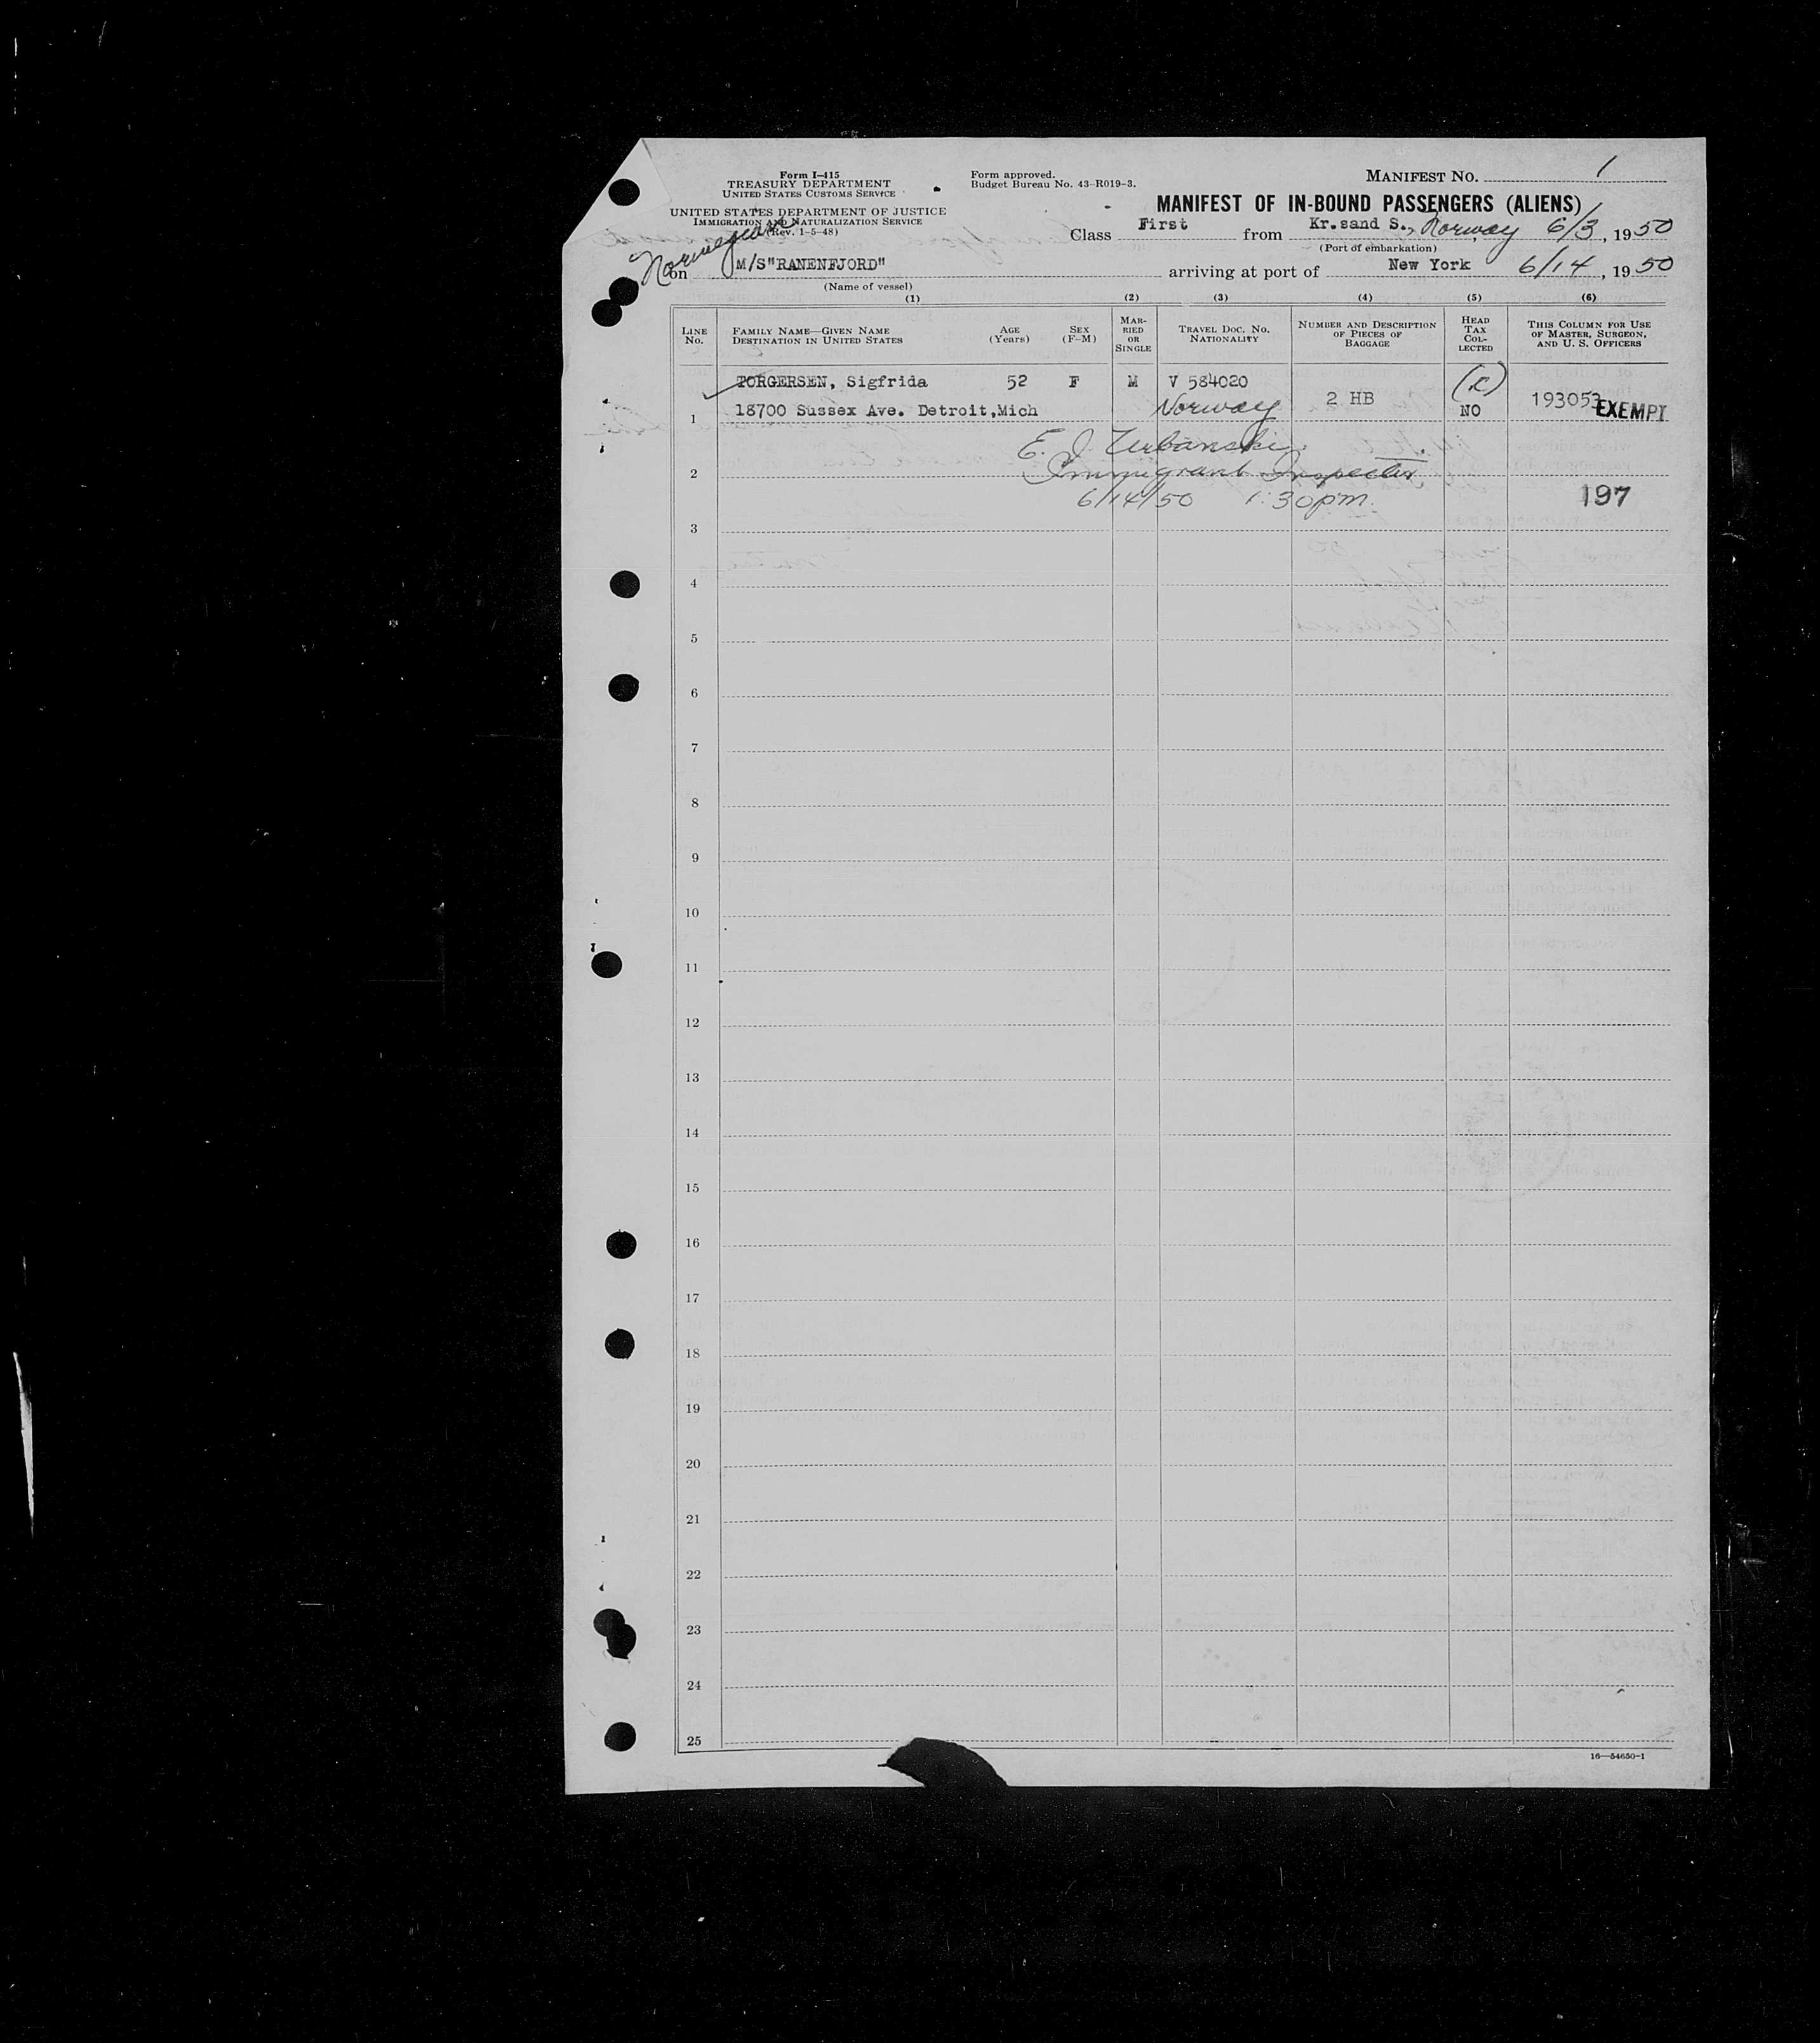 Form I-415
TREASURY DEPARTMENT
UNITED STATES CUSTOMS SERVICE
UNITED STATES DEPARTMENT OF JUSTICE
IMMIGRATION AND NATURALIZATION SERVICE
(Rev. 1-5-48)
Form approved.
Budget Bureau No. 43-R019-3.
MANIFEST NO. 1
MANIFEST OF IN-BOUND PASSENGERS (ALIENS)
Class First from Kr.sand S., Norway 6/3, 1950
(Port of embarkation)
Norwegian
on M/S"RANENFJORD" arriving at port of New York 6/14, 1950
(Name of vessel)
(1) (2) (3) (4) (5) (6)
LINE No.
FAMILY NAME—GIVEN NAME
DESTINATION IN UNITED STATES
AGE (Years)
SEX (F-M)
MARRIED OR SINGLE
TRAVEL DOC. NO. NATIONALITY
NUMBER AND DESCRIPTION OF PIECES OF BAGGAGE
HEAD TAX COLLECTED
THIS COLUMN FOR USE OF MASTER, SURGEON, AND U. S. OFFICERS
TORGERSEN, Sigfrida 52 F M V 584020
1 18700 Sussex Ave. Detroit,Mich Norway 2 HB NO 193053 EXEMPT
E. J. Urbanski
2 Immigrant Inspector
6/14/50 1:30pm. 197
3
4
5
6
7
8
9
10
11
12
13
14
15
16
17
18
19
20
21
22
23
24
25
16—54650-1